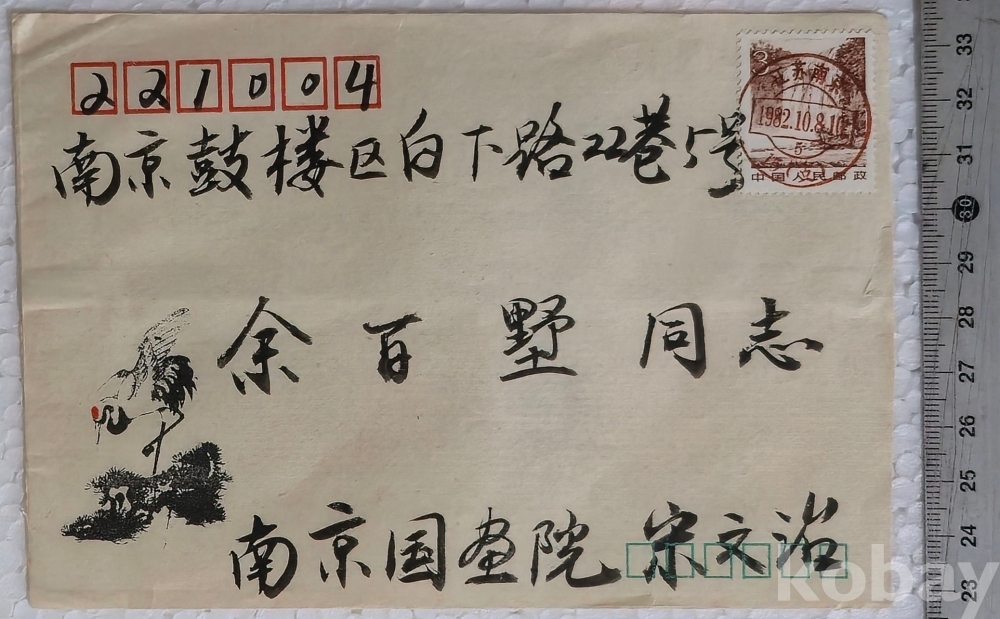 221004
南京鼓楼区白下路22巷5号
3
江苏南京
1982.10.8.10
中国人民邮政
余百墅同志
南京国画院 宋文治
kobay
33
32
31
30
29
28
27
26
25
24
23